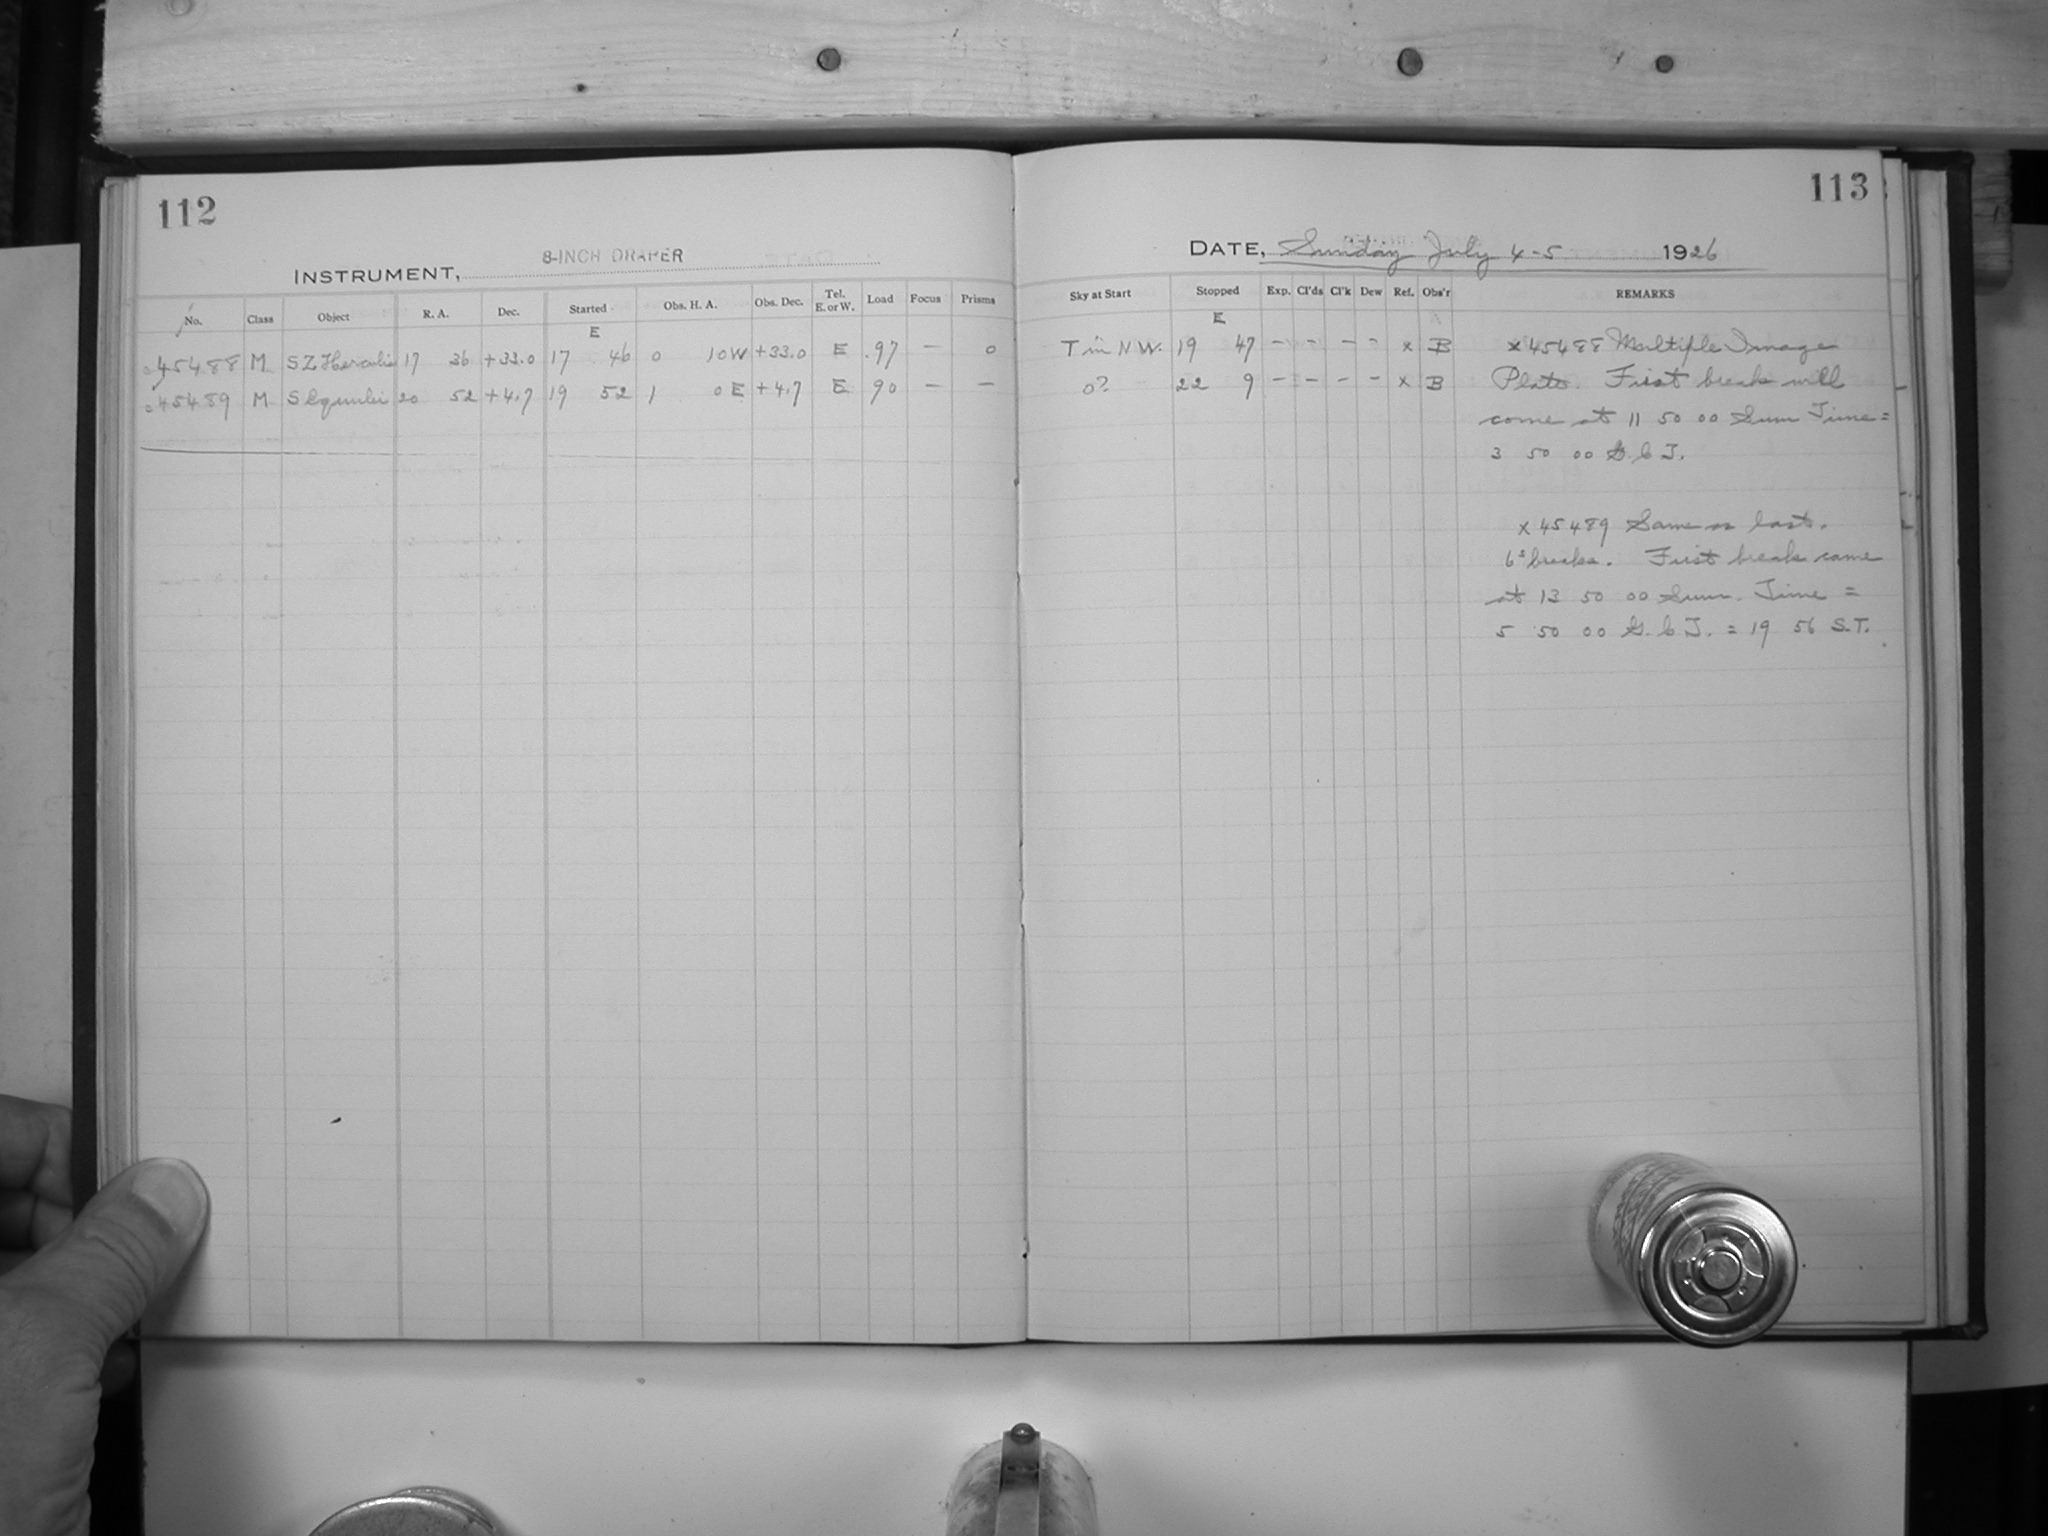 112
8-INCH DRAPER
INSTRUMENT,
No. Class Object R. A. Dec. Started Obs. H. A. Obs. Dec. Tel. E. or W. Load Focus Prisms
E
45488 M SZ Herculis 17 36 +33.0 17 46 0 10W +33.0 E .97 — 0
45489 M S Equulei 20 52 +4.7 19 52 1 0E +4.7 E 90 — —
113
DATE, Sunday July 4-5 1926
Sky at Start Stopped Exp. Cl'ds Cl'k Dew Ref. Obs'r REMARKS
E
T in N W. 19 47 - - - - x B
0? 22 9 - - - - x B
x 45488 Multiple Image
Plate. First break will
come at 11 50 00 Sum Time =
3 50 00 G.C.T.
x 45489 Same as last.
6s breaks. First break came
at 13 50 00 Sum. Time =
5 50 00 G.C.T. = 19 56 S.T.